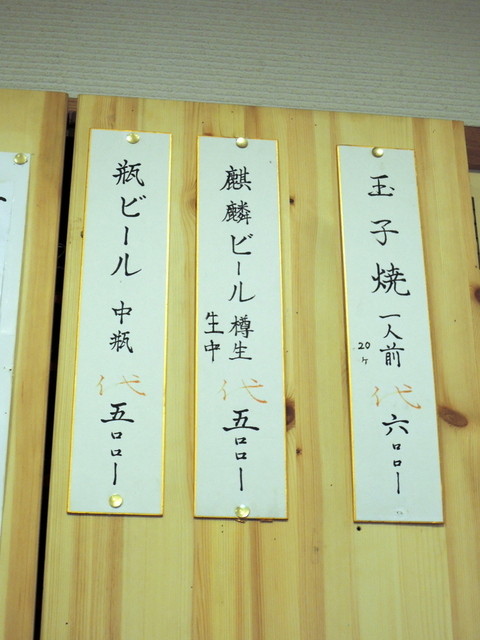 玉子焼 一人前 20ヶ 代 六〇〇ー
麒麟ビール 樽生 生中 代 五〇〇ー
瓶ビール 中瓶 代 五〇〇ー